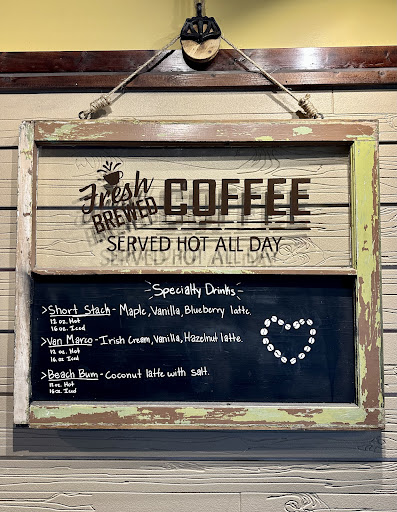 Fresh
BREWED COFFEE
SERVED HOT ALL DAY
Specialty Drinks
>Short Stack - Maple, Vanilla, Blueberry latte.
12 oz. Hot
16 oz. Iced
>Van Marco - Irish Cream, Vanilla, Hazelnut latte.
12 oz. Hot
16 oz Iced
>Beach Bum - Coconut latte with salt.
12 oz. Hot
16 oz. Iced